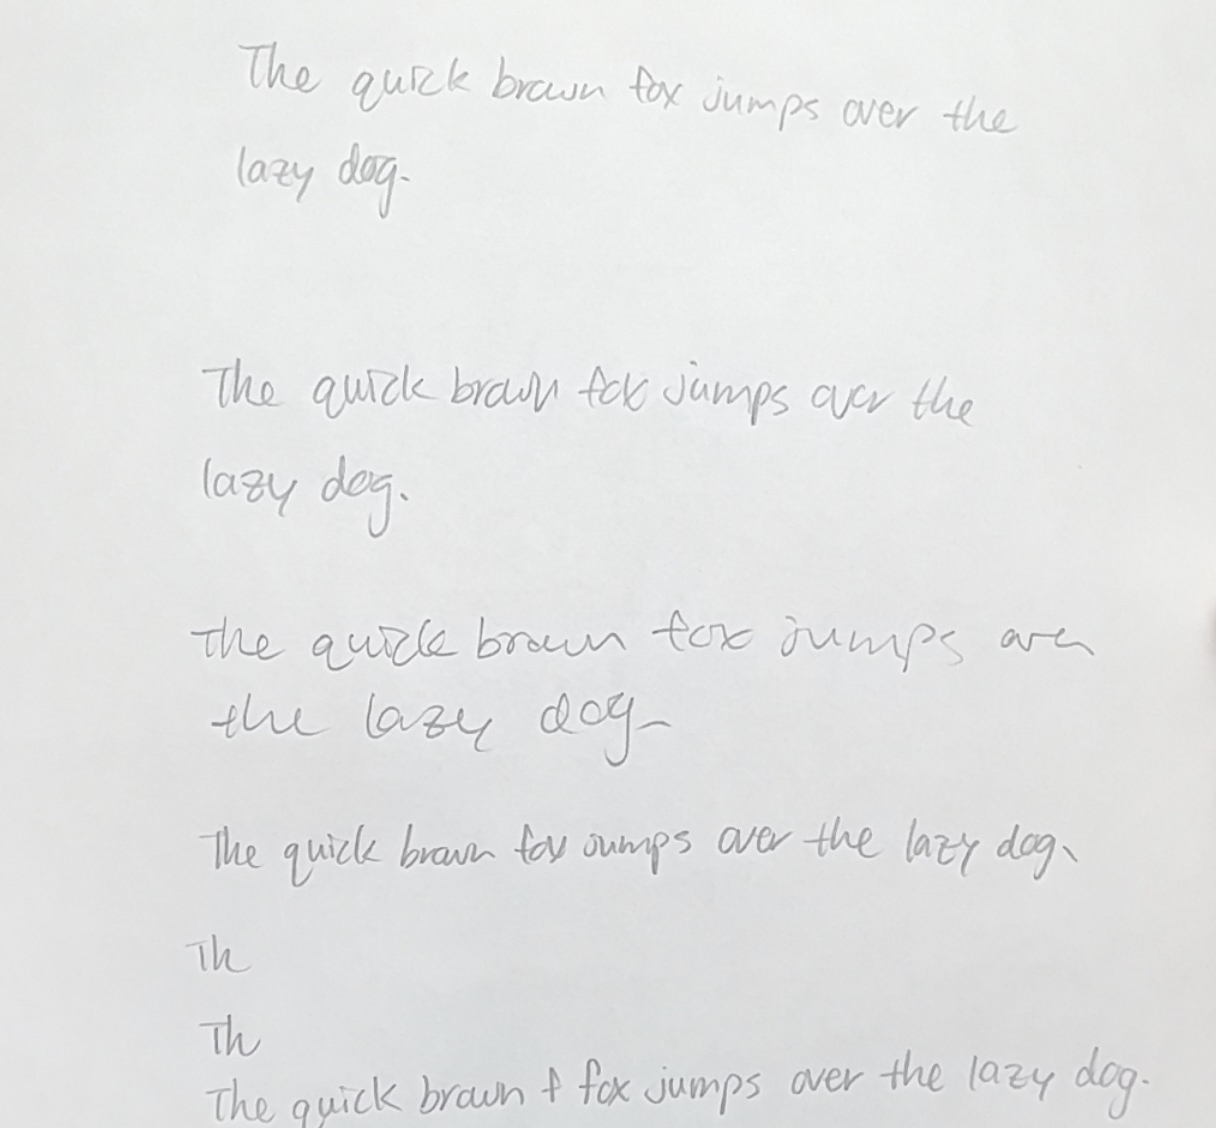 The quick brown fox jumps over the
lazy dog.
The quick brown fox jumps over the
lazy dog.
The quick brown fox jumps over
the lazy dog.
The quick brown fox jumps over the lazy dog.
Th
Th
The quick brown f fox jumps over the lazy dog.